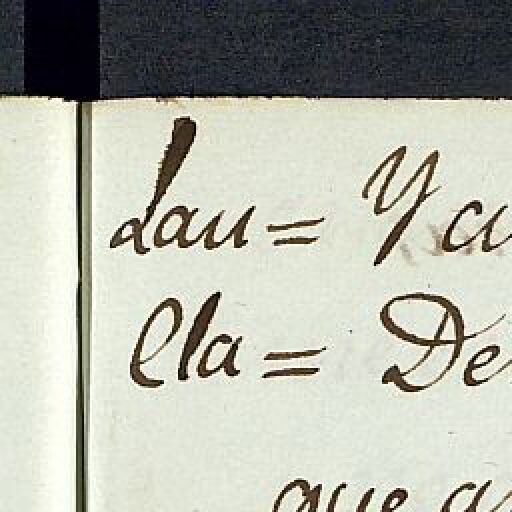 Lau= Ya
Cla= De
que a